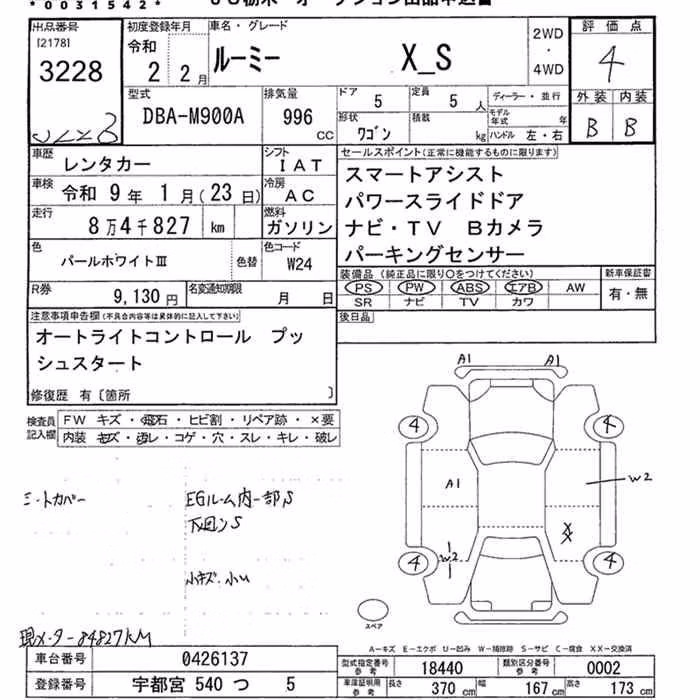 *0031542*
出品番号
[2178]
3228
初度登録年月
令和
2 2月
車名・グレード
ルーミー X_S
2WD
・
4WD
評価点
4
外装 内装
B B
型式
DBA-M900A
排気量
996
CC
ドア
5
定員
5人
ディーラー・並行
形状
ワゴン
積載
kg
モデル年式 年
ハンドル 左・右
車歴
レンタカー
シフト
IAT
車検
令和 9年 1月(23日)
冷房
AC
走行
8万4千827 km
燃料
ガソリン
色
パールホワイトⅢ
色替
色コード
W24
R券
9,130円
名変通知期限
月 日
セールスポイント(正常に機能するものに限ります)
スマートアシスト
パワースライドドア
ナビ・TV Bカメラ
パーキングセンサー
装備品 (純正品に限り○をつけてください)
PS PW ABS エアB AW
SR ナビ TV カワ
新車保証書
有・無
後日品
注意事項申告欄(不具合内容等は具体的に記入して下さい)
オートライトコントロール プッ
シュスタート
修復歴 有〔箇所 〕
検査員
記入欄
FW キズ・飛石・ヒビ割・リペア跡・×要
内装 キズ・汚レ・コゲ・穴・スレ・キレ・破レ
シートカバー
EGルーム内一部S
下回りS
小キズ.小U
現メーター84827KM
A1 A1
4 4
A1
W2
XX
W2
4 4
スペア
A-キズ E-エクボ U-凹み W-補修跡 S-サビ C-腐食 XX-交換済
車台番号
0426137
登録番号
宇都宮 540 つ 5
型式指定番号
参考
18440
類別区分番号
参考
0002
車庫証明用
参考
長さ
370 cm
幅
167 cm
高さ
173 cm